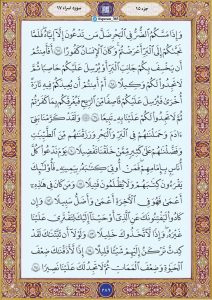 جزء ۱۵
سوره اسراء ۱۷
وَإِذَا مَسَّكُمُ ٱلضُّرُّ فِي ٱلْبَحْرِ ضَلَّ مَن تَدْعُونَ إِلَّآ إِيَّاهُ فَلَمَّا
نَجَّىٰكُمْ إِلَى ٱلْبَرِّ أَعْرَضْتُمْ وَكَانَ ٱلْإِنسَٰنُ كَفُورًا ۶۷ أَفَأَمِنتُمْ
أَن يَخْسِفَ بِكُمْ جَانِبَ ٱلْبَرِّ أَوْ يُرْسِلَ عَلَيْكُمْ حَاصِبًا ثُمَّ
لَا تَجِدُوا۟ لَكُمْ وَكِيلًا ۶۸ أَمْ أَمِنتُمْ أَن يُعِيدَكُمْ فِيهِ تَارَةً
أُخْرَىٰ فَيُرْسِلَ عَلَيْكُمْ قَاصِفًا مِّنَ ٱلرِّيحِ فَيُغْرِقَكُم بِمَا كَفَرْتُمْ
ثُمَّ لَا تَجِدُوا۟ لَكُمْ عَلَيْنَا بِهِۦ تَبِيعًا ۶۹ وَلَقَدْ كَرَّمْنَا بَنِىٓ
ءَادَمَ وَحَمَلْنَٰهُمْ فِى ٱلْبَرِّ وَٱلْبَحْرِ وَرَزَقْنَٰهُم مِّنَ ٱلطَّيِّبَٰتِ
وَفَضَّلْنَٰهُمْ عَلَىٰ كَثِيرٍ مِّمَّنْ خَلَقْنَا تَفْضِيلًا ۷۰ يَوْمَ نَدْعُوا۟ كُلَّ
أُنَاسٍۭ بِإِمَٰمِهِمْ فَمَنْ أُوتِىَ كِتَٰبَهُۥ بِيَمِينِهِۦ فَأُو۟لَٰٓئِكَ
يَقْرَءُونَ كِتَٰبَهُمْ وَلَا يُظْلَمُونَ فَتِيلًا ۷۱ وَمَن كَانَ فِى هَٰذِهِۦٓ
أَعْمَىٰ فَهُوَ فِى ٱلْءَاخِرَةِ أَعْمَىٰ وَأَضَلُّ سَبِيلًا ۷۲ وَإِن
كَادُوا۟ لَيَفْتِنُونَكَ عَنِ ٱلَّذِىٓ أَوْحَيْنَآ إِلَيْكَ لِتَفْتَرِىَ عَلَيْنَا
غَيْرَهُۥ وَإِذًا لَّٱتَّخَذُوكَ خَلِيلًا ۷۳ وَلَوْلَآ أَن ثَبَّتْنَٰكَ لَقَدْ
كِدتَّ تَرْكَنُ إِلَيْهِمْ شَيْـًٔا قَلِيلًا ۷۴ إِذًا لَّأَذَقْنَٰكَ ضِعْفَ
ٱلْحَيَوٰةِ وَضِعْفَ ٱلْمَمَاتِ ثُمَّ لَا تَجِدُ لَكَ عَلَيْنَا نَصِيرًا ۷۵
۲۸۹